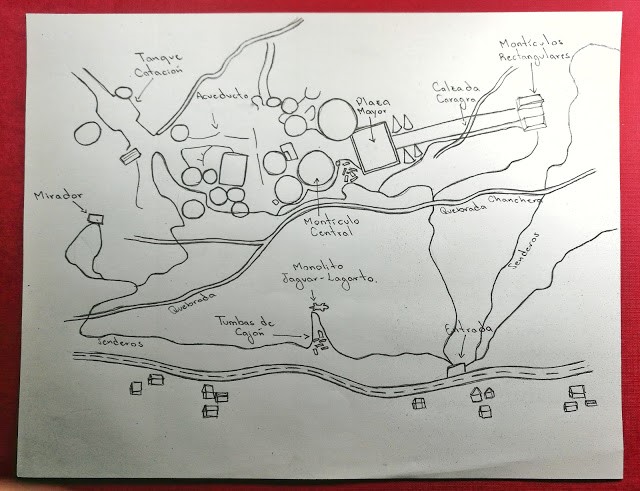 Tanque
Cotación
Montículos
Rectangulares
Acueducto
Plaza
Mayor
Calzada
Caragra
Mirador
Montículo
Central
Quebrada
Chanchera
Senderos
Monolito
Jaguar-Lagarto.
Quebrada
Tumbas de
Cajón
Entrada
Senderos